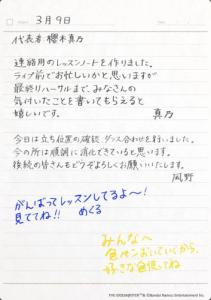 3月9日
代表者 櫻木真乃
連絡用のレッスンノートを作りました。
ライブ前でお忙しいかと思いますが
最終リハーサルまで、みなさんの
気付いたことを書いてもらえると
嬉しいです。 真乃
今日は立ち位置の確認、ダンス合わせを行いました。
今の所は順調に消化できていると思います。
後続の皆さんもどうぞよろしくお願いいたします。
風野
がんばってレッスンしてるよ〜!
見ててね!! めぐる
みんなへ
色ペンおいていくから、
好きな色使ってね
THE IDOLM@STER™& ©Bandai Namco Entertainment Inc.